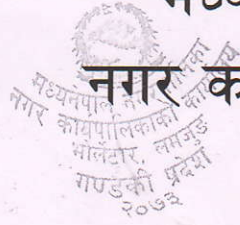 नगर क
मध्यनेपाल नगरपालिका
नगर कार्यपालिकाको कार्यालय
भोर्लेटार, लमजुङ
गण्डकी प्रदेश
२०७३